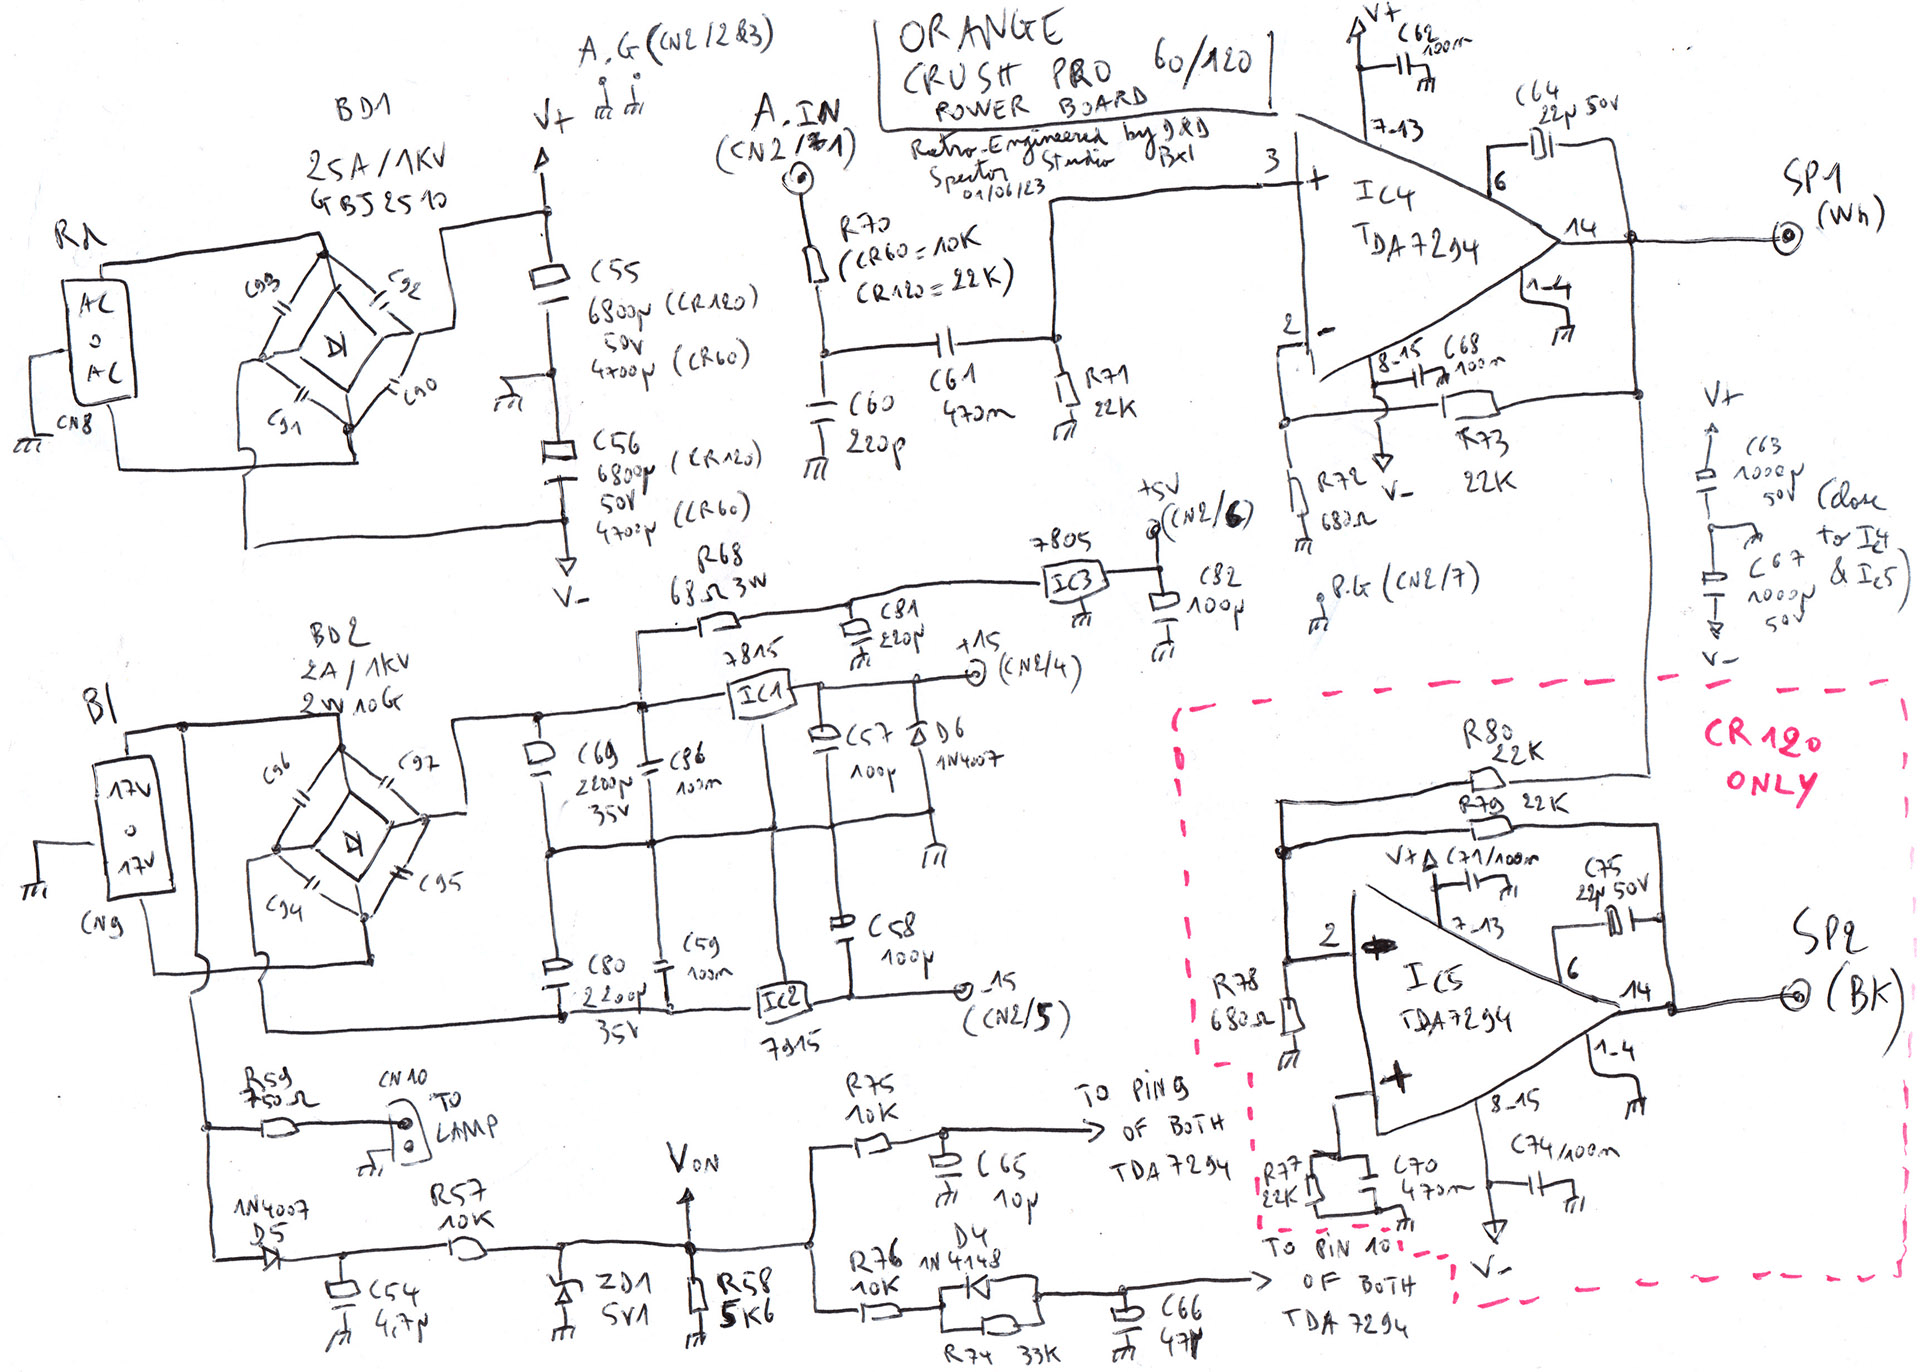 A.G (CN2/2&3)
ORANGE
CRUSH PRO 60/120
POWER BOARD
Retro-Engineered by J&D
Spector Studio Bxl
01/06/23
V+
C62
100n
C64
22µ 50V
7-13
3
+
IC4
TDA7294
6
14
SP1
(Wh)
1-4
2
-
8-15
C68
100n
V-
R73
22K
R72
680Ω
BD1
25A/1KV
GBJ2510
V+
Rd
AC
0
AC
CN8
C93
C92
C91
C90
C55
6800µ (CR120)
50V
4700µ (CR60)
C56
6800µ (CR120)
50V
4700µ (CR60)
V-
A.IN
(CN2/1)
R70
(CR60=10K
CR120=22K)
C61
470n
C60
220p
R71
22K
V+
C63
1000µ
50V
(close
to IC4
& IC5)
C67
1000µ
50V
V-
P.G (CN2/7)
BD2
2A/1KV
2W10G
Bl
17V
0
17V
CN9
C96
C97
C94
C95
R68
68Ω 3W
C81
220µ
7805
IC3
+5V
(CN2/6)
C82
100µ
7815
IC1
+15
(CN2/4)
C69
2200µ
35V
C86
100n
C57
100µ
D6
1N4007
C80
2200µ
35V
C59
100n
C58
100µ
IC2
7915
-15
(CN2/5)
R59
750Ω
CN10
TO
LAMP
1N4007
D5
R57
10K
C54
4,7µ
ZD1
5V1
VON
R58
5K6
R75
10K
C65
10µ
TO PIN 9
OF BOTH
TDA7294
R76
10K
D4
1N4148
R74 33K
C66
47µ
TO PIN 10
OF BOTH
TDA7294
CR120
ONLY
R80
22K
R79 22K
V+
C71/100n
7-13
C75
22µ 50V
2
IC5
TDA7294
6
14
SP2
(BK)
1-4
+
8-15
R78
680Ω
R77
22K
C70
470n
C74/100n
V-